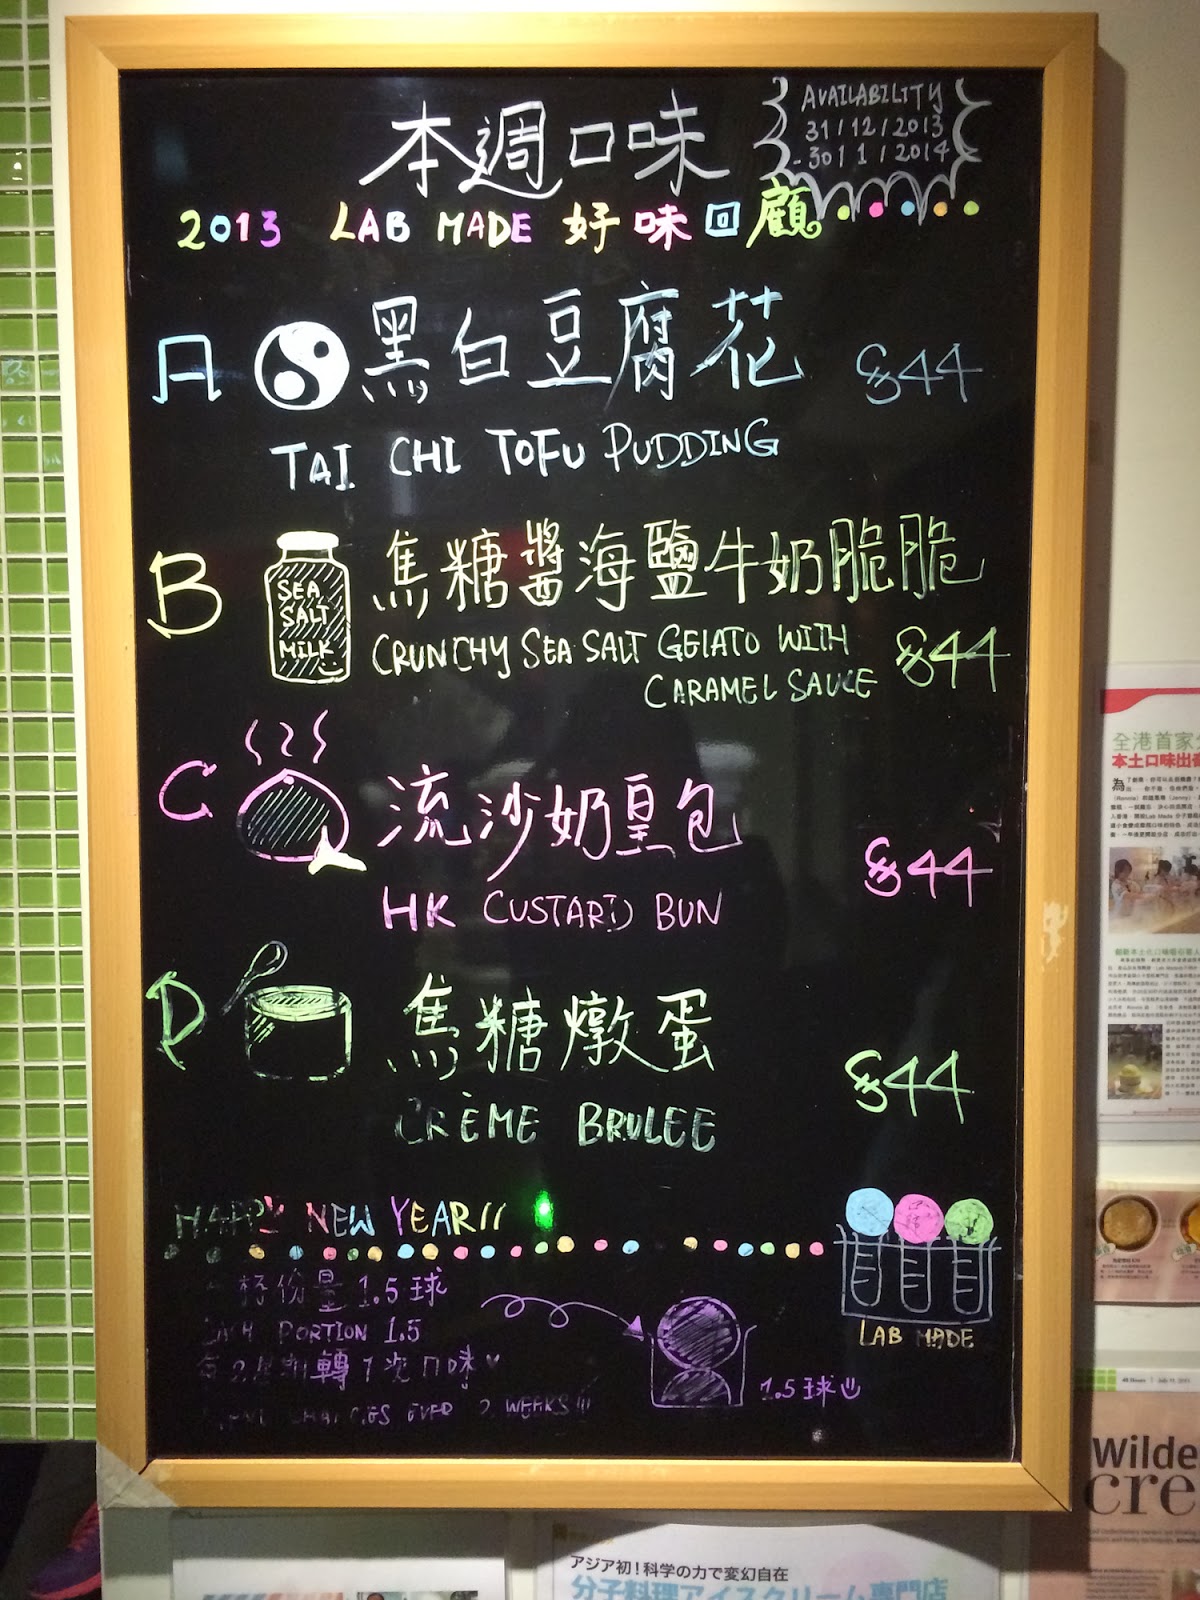 本週口味
AVAILABILITY
31/12/2013
- 30/1/2014
2013 LAB MADE 好味回顧
A 黑白豆腐花 $44
TAI CHI TOFU PUDDING
B 焦糖醬海鹽牛奶脆脆
SEA
SALT
MILK
CRUNCHY SEA SALT GELATO WITH
CARAMEL SAUCE $44
C 流沙奶皇包
HK CUSTARD BUN $44
D 焦糖燉蛋
CRÈME BRULEE $44
HAPPY NEW YEAR!!
LAB MADE
一杯份量1.5球
EACH PORTION 1.5
每2星期轉1次口味♥
CHANGES EVER 2 WEEKS!!!
1.5球
全港首家
本土口味出
48 Hours | July 11, 2013
Wilde
cre
アジア初！科学の力で変幻自在
分子料理アイスクリーム専門店